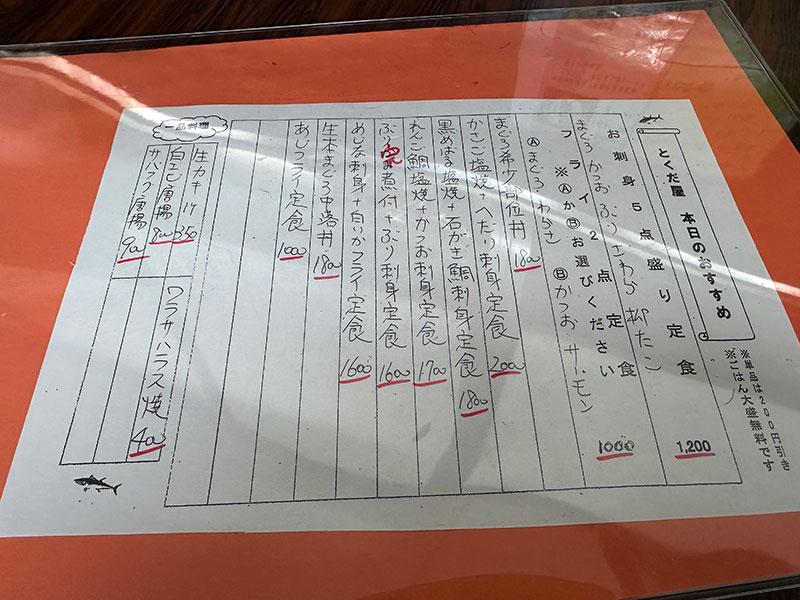 とくだ屋 本日のおすすめ
※単品は200円引き
※ごはん大盛無料です
お刺身5点盛り定食 1,200
まぐろ かつお ぶり さわら 柳たこ
フライ2点定食 1000
※ⒶかⒷお選びください
Ⓐまぐろ・わらさ Ⓑかつお サーモン
まぐろ希少部位丼 1800
かさご塩焼+へだい刺身定食 2000
黒めばる塩焼+石がき鯛刺身定食 1800
れんこ鯛塩焼+かつお刺身定食 1700
煮付+ぶり刺身定食 1600
めじな刺身+白いかフライ定食 1600
生本まぐろ中落丼 1800
あじフライ定食 1000
一品料理
生カキ1ケ 350
白エビ唐揚 800
サバフグ唐揚 900
ワラサハラス焼 400